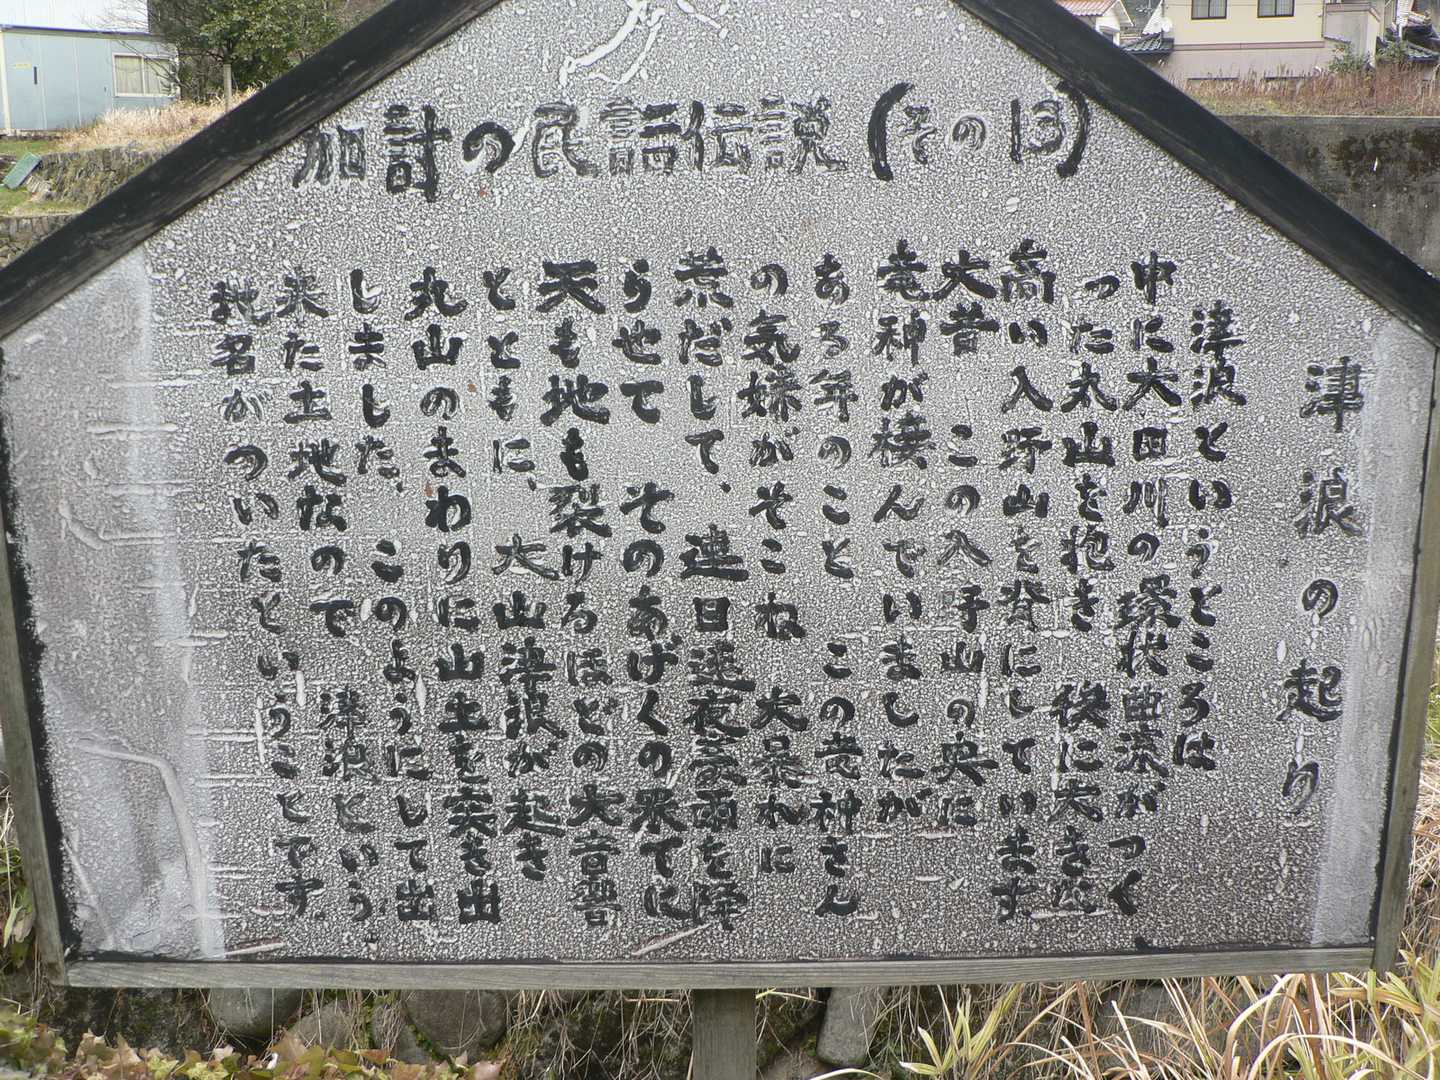 加計の民話伝説(その13)
津浪の起り
津浪というところは
中に大田川の環状曲流がつく
った太山を抱き 後に大きな
高い入野山を背にしています
大昔 この入野山の央に
竜神が棲んでいましたが
ある年のこと この竜神さん
の気嫌がそこね 大暴れに
荒だして、連日連夜豪雨を降
らせて そのあげくの果てに
天も地も裂けるほどの大音響
とともに、大山津浪が起き
丸山のまわりに山土を突き出
しました、このようにして出
来た土地なので 津浪という
地名がついたということです